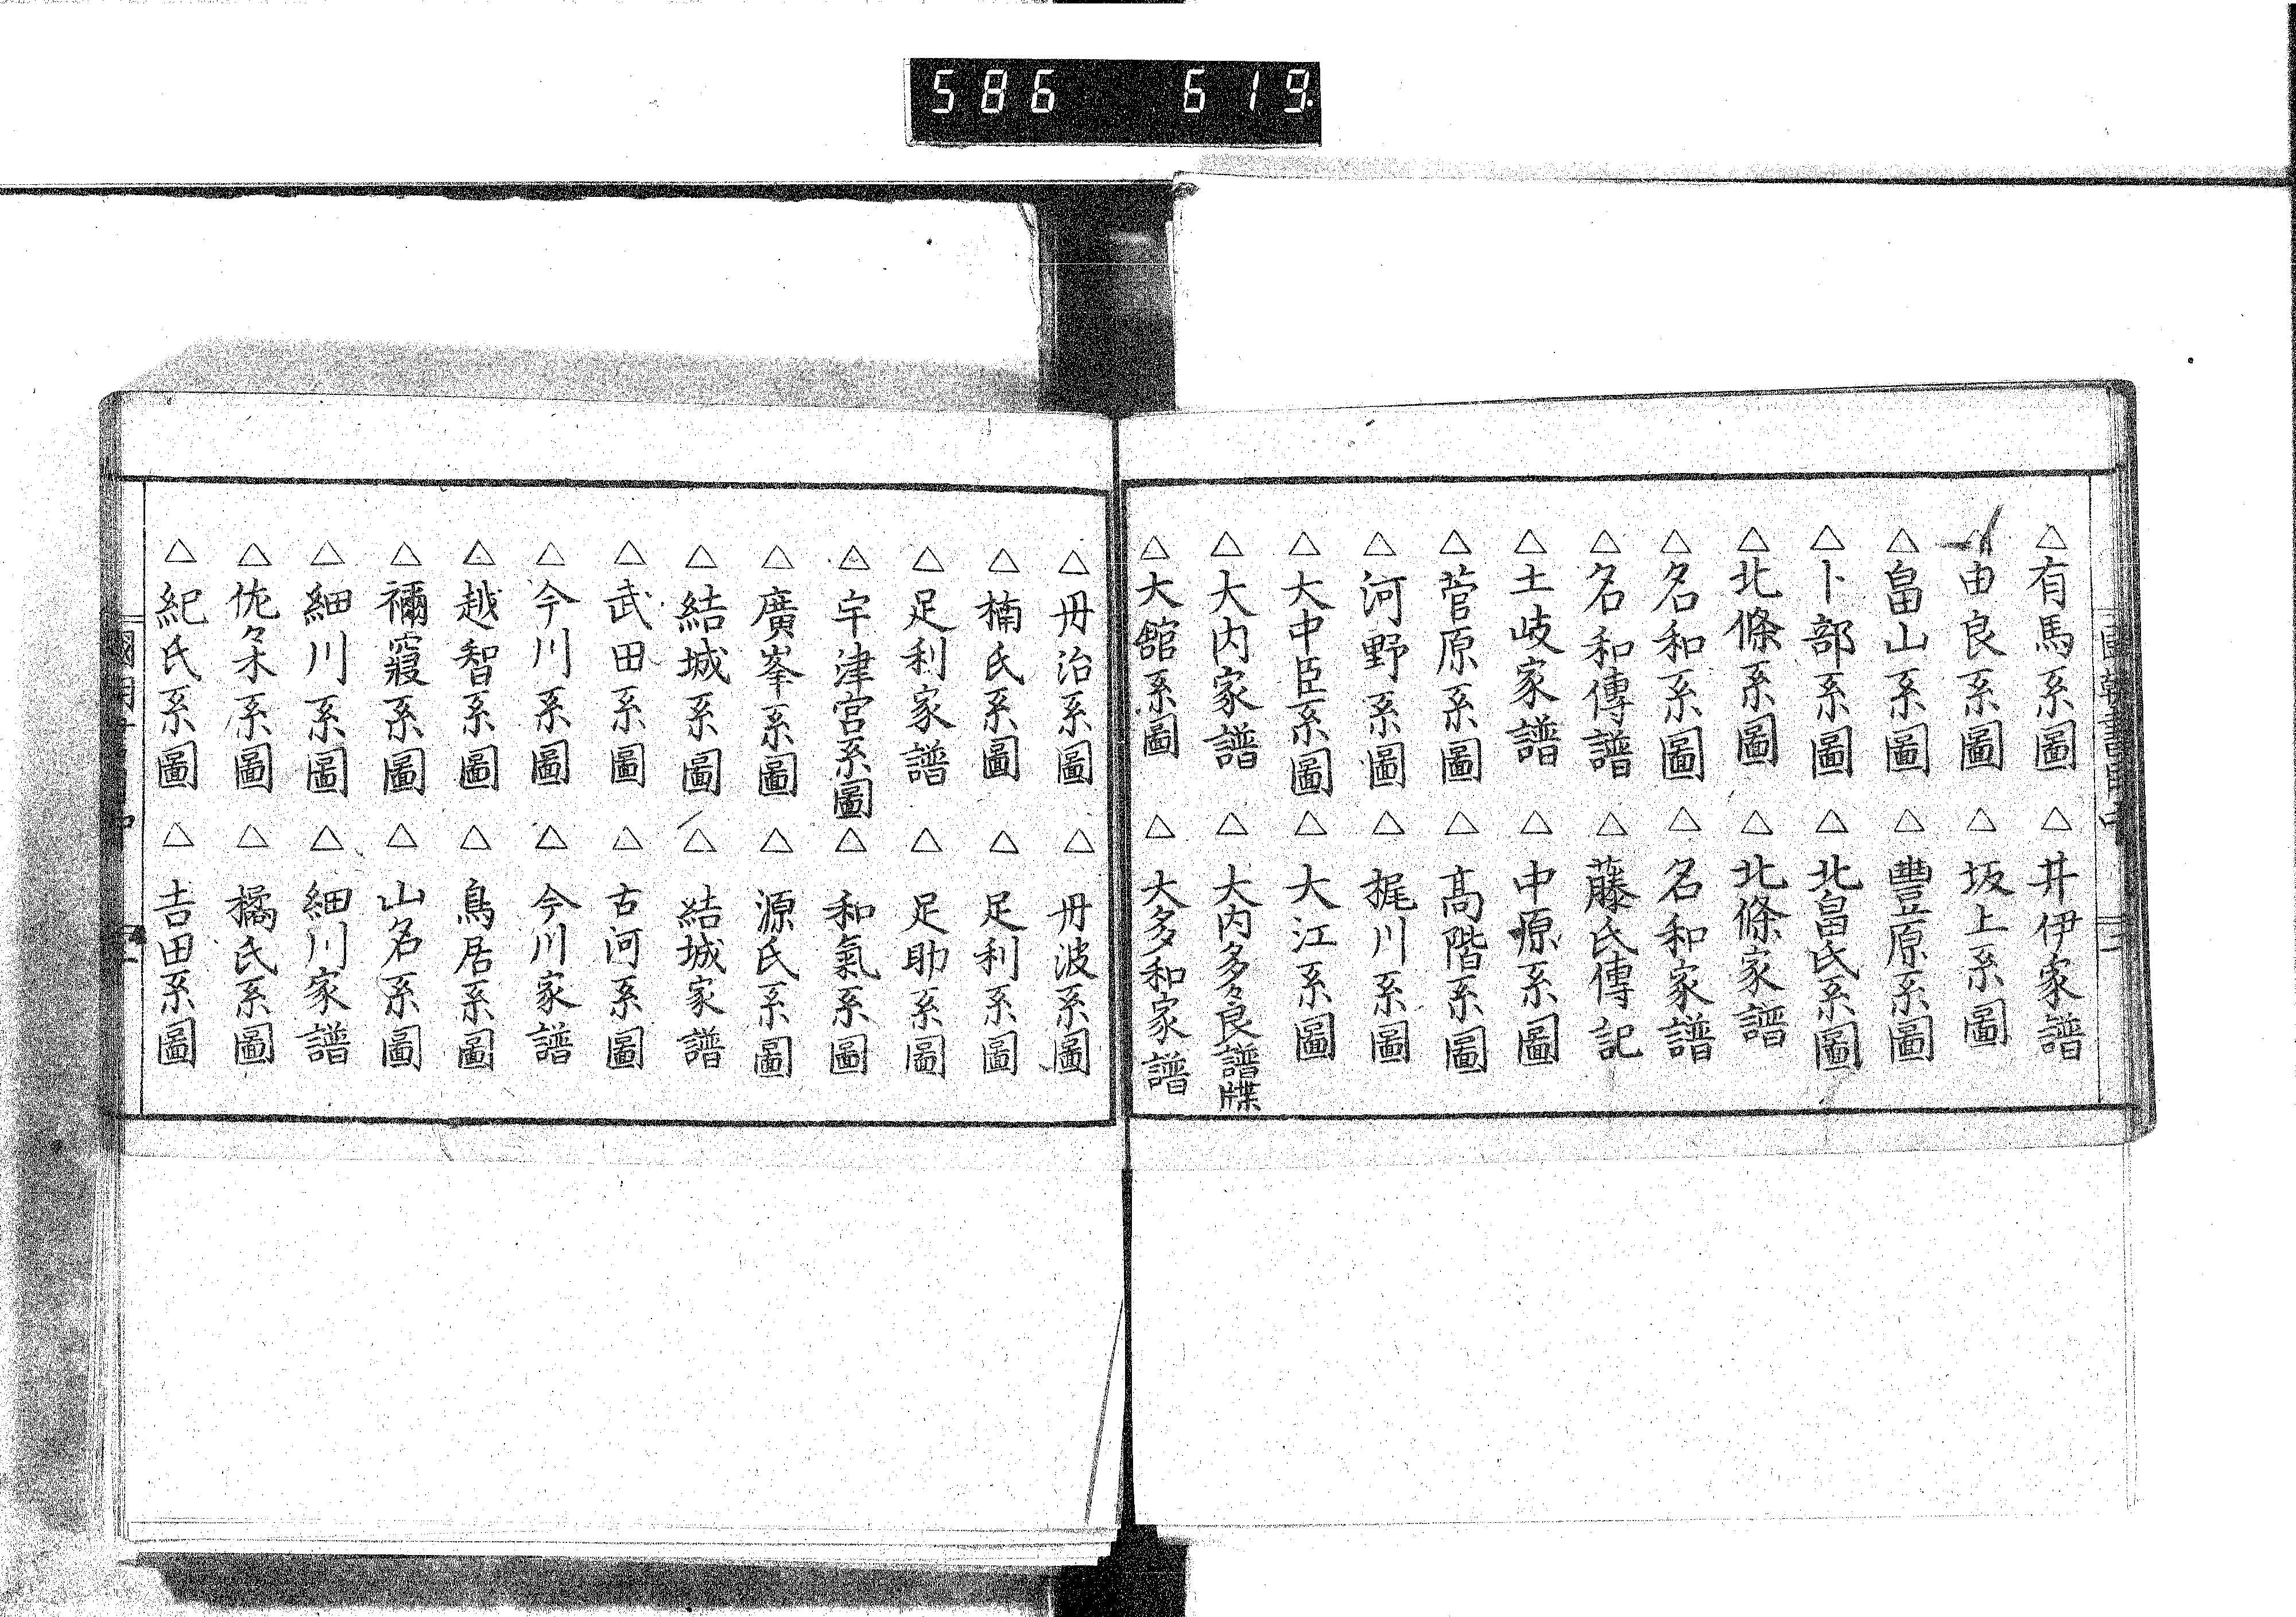 586 619
△有馬系圖 △井伊家譜
△由良系圖 △坂上系圖
△畠山系圖 △豐原系圖
△卜部系圖 △北畠氏系圖
△北條系圖 △北條家譜
△名和系圖 △名和家譜
△名和傳譜 △藤氏傳記
△土岐家譜 △中原系圖
△菅原系圖 △高階系圖
△河野系圖 △梶川系圖
△大中臣系圖 △大江系圖
△大内家譜 △大内多々良譜牒
△大舘系圖 △大多和家譜
△丹治系圖 △丹波系圖
△楠氏系圖 △足利系圖
△足利家譜 △足助系圖
△宇津宮系圖 △和氣系圖
△廣峯系圖 △源氏系圖
△結城系圖 △結城家譜
△武田系圖 △古河系圖
△今川系圖 △今川家譜
△越智系圖 △鳥居系圖
△禰寢系圖 △山名系圖
△細川系圖 △細川家譜
△佐々木系圖 △橘氏系圖
△紀氏系圖 △吉田系圖